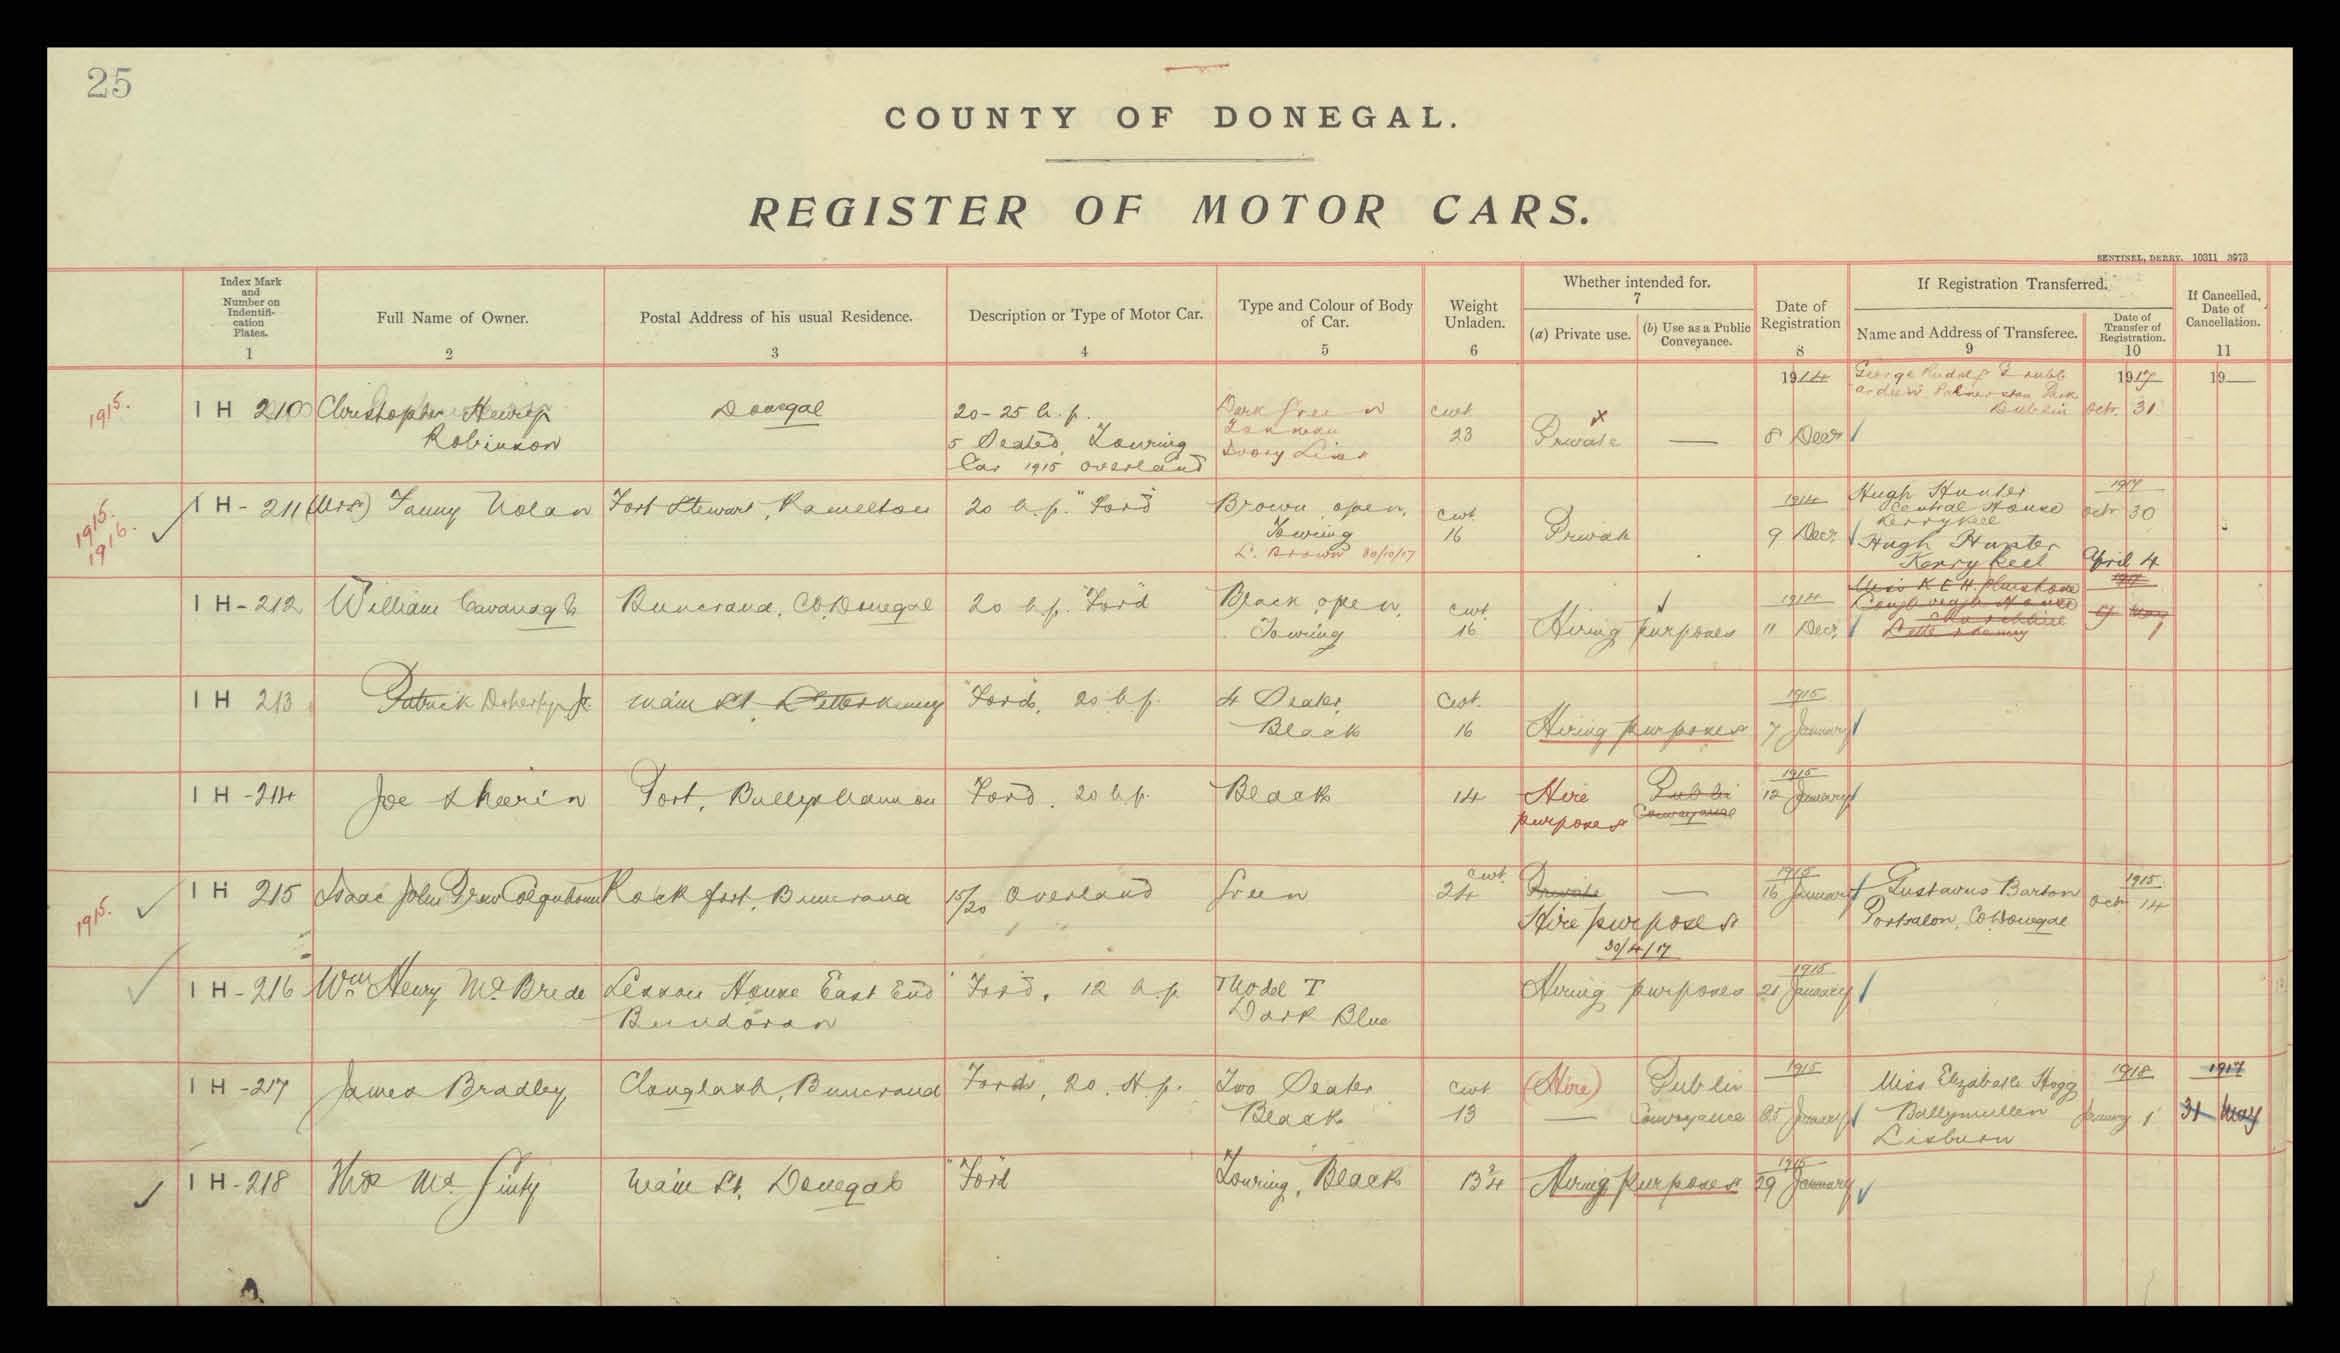 25
COUNTY OF DONEGAL.
REGISTER OF MOTOR CARS.
SENTINEL, DERRY. 10311 3973
Index Mark
and
Number on
Indentifi-
cation
Plates.
1
Full Name of Owner.
2
Postal Address of his usual Residence.
3
Description or Type of Motor Car.
4
Type and Colour of Body
of Car.
5
Weight
Unladen.
6
Whether intended for.
7
(a) Private use.
(b) Use as a Public
Conveyance.
Date of
Registration
8
If Registration Transferred.
Name and Address of Transferee.
9
Date of
Transfer of
Registration.
10
If Cancelled,
Date of
Cancellation.
11
1914
1917
19
1915.
I H 210
Christopher Henry
Robinson
Donegal
20-25 h.p.
5 Seated, Touring
Car 1915 Overland
Dark Green
Ivory Lines
cwt.
23
x
Private
8 Decr
George Rudolf
Palmerston Park
Dublin
Octr. 31
1915.
1916.
I H - 211
(Mrs) Fanny Nolan
Fort Stewart, Ramelton
20 h.p. "Ford"
Brown open,
Touring
L. Brown 30/10/17
cwt
16
Private
1914
9 Decr.
Hugh Hunter
Central House
Kerrykeel
1917
Octr 30
Hugh Hunter
Kerrykeel
April 4
I H - 212
William Cavanagh
Buncrana, Co. Donegal
20 h.p. "Ford"
Black open,
Touring
cwt.
16
Hiring purposes
1914
11 Decr.
Miss K E H
Letterkenny
May
I H 213
Patrick Doherty Jr.
Main St, Letterkenny
"Ford, 20 h.p.
4 Seater,
Black
Cwt.
16
Hiring purposes
1915
7 January
I H - 214
Joe Sheerin
Port, Ballyshannon
Ford. 20 h.p.
Black
14
Hire
purposes
Public
Conveyance
1915
12 January
1915.
I H 215
Isaac John Drew Colquhoun
Rockfort, Buncrana
15/20 Overland
Green
cwt.
24
Private
Hire purposes
30/4/17
1915
16 January
Gustavus Barton
Portsalon, Co. Donegal
1915.
Octr 14
I H - 216
Wm Henry Mc Bride
Lennon House East End
Bundoran
Ford, 12 h.p
Model T
Dark Blue
Hiring purposes
1915
21 January
I H - 217
James Bradley
Clonglash, Buncrana
"Ford", 20 H.p.
Two Seater
Black
cwt
13
(Hire)
Public
Conveyance
1915
25 January
Miss Elizabeth Hogg
Ballymullen
Lisburn
1918
January 1
1917
31 May
I H - 218
Thos Mc Ginty
Main St. Donegal
"Ford"
Touring, Black
13 3/4
Hiring purposes
1915
29 January